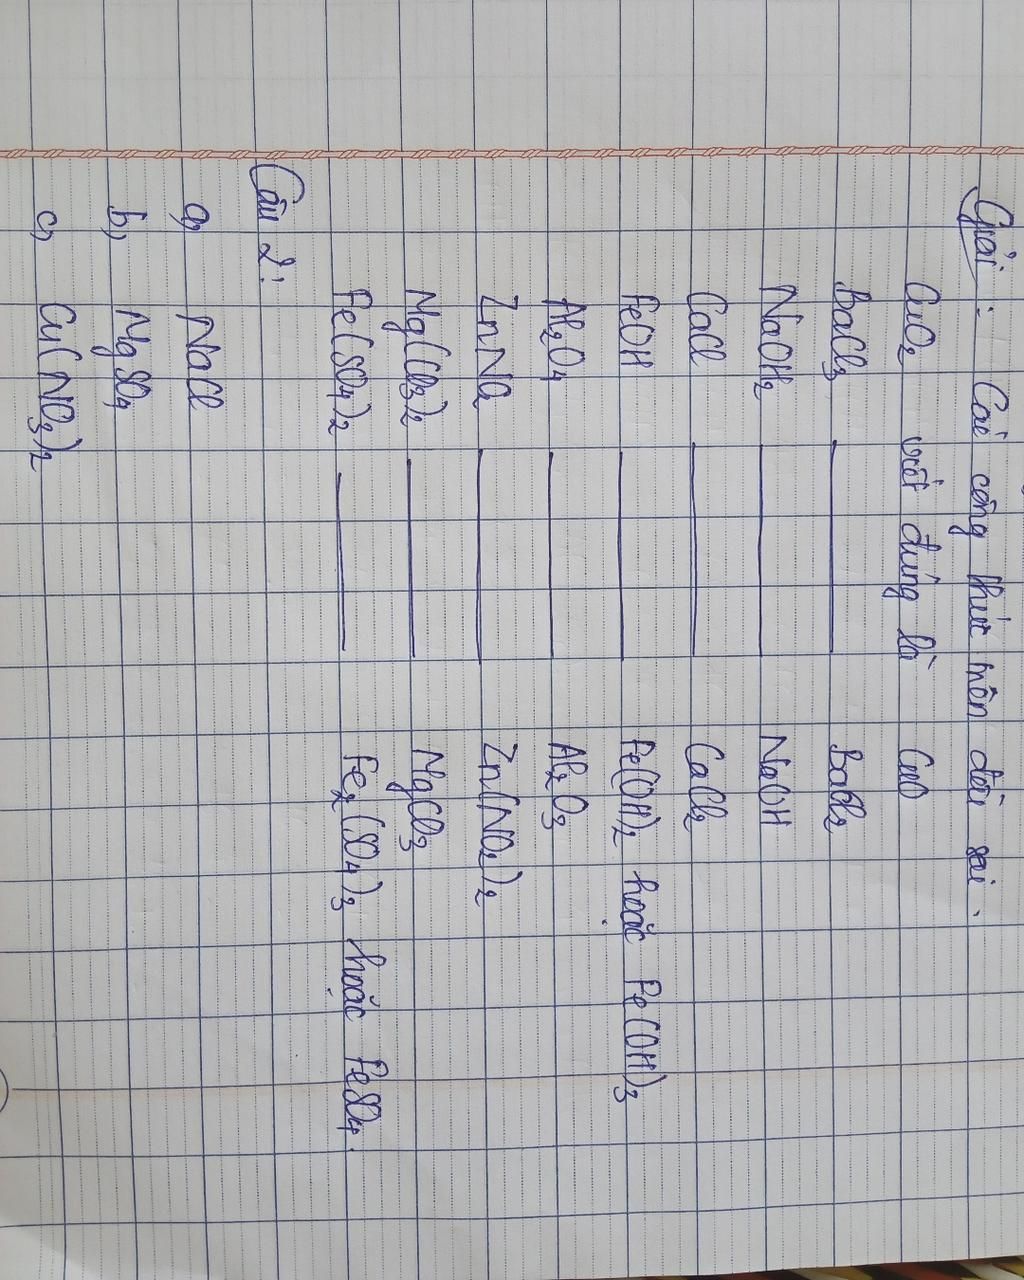 Giải : Các công thức trên đều sai.
CuO₂ viết đúng là CuO
BaCl₃ ——— BaCl₂
NaOH₂ ——— NaOH
CaCl ——— CaCl₂
FeOH ——— Fe(OH)₂ hoặc Fe(OH)₃
Al₂O₄ ——— Al₂O₃
ZnNO₂ ——— Zn(NO₂)₂
Mg(CO₃)₂ ——— MgCO₃
Fe(SO₄)₂ ——— Fe₂(SO₄)₃ hoặc FeSO₄.
Câu 2:
a, NaCl
b, MgSO₄
c, Cu(NO₃)₂